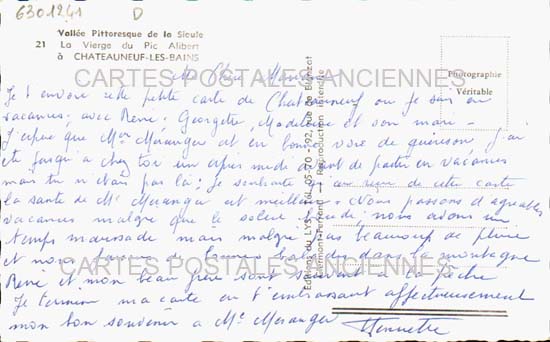 6301241 D
Vallée Pittoresque de la Sioule
21 La Vierge du Pic Alibert
à CHATEAUNEUF-LES-BAINS
CARTES POSTALES ANCIENNES
Photographie
Véritable
Ma Chère
Je t envoie cette petite carte de Chateauneuf ou je suis en
vacances, avec René, Georgette, Madeleine et son mari -
J'espère que Mr Méranger et en bonne voie de guérison, j'ai
été jusqu'a chez toi un après midi avant de partir en vacances
mais tu n'étais pas là: Je souhaite qu au reçu de cette carte
la santé de Mr Meranger est meilleure. Nous passons d agréables
vacances malgré que le soleil nous avons un
temps maussade mais malgré pas beaucoup de pluie
et nous faisons de bonnes balades dans la montagne
René et mon beau frère sont souvent a la pêche
Je termine ma carte en t'embrassant affectueusement
mon bon souvenir a Mr Meranger Henriette
CARTES POSTALES ANCIENNES
Editions du LYS
Clermont-Ferrand - Reproduction interdite